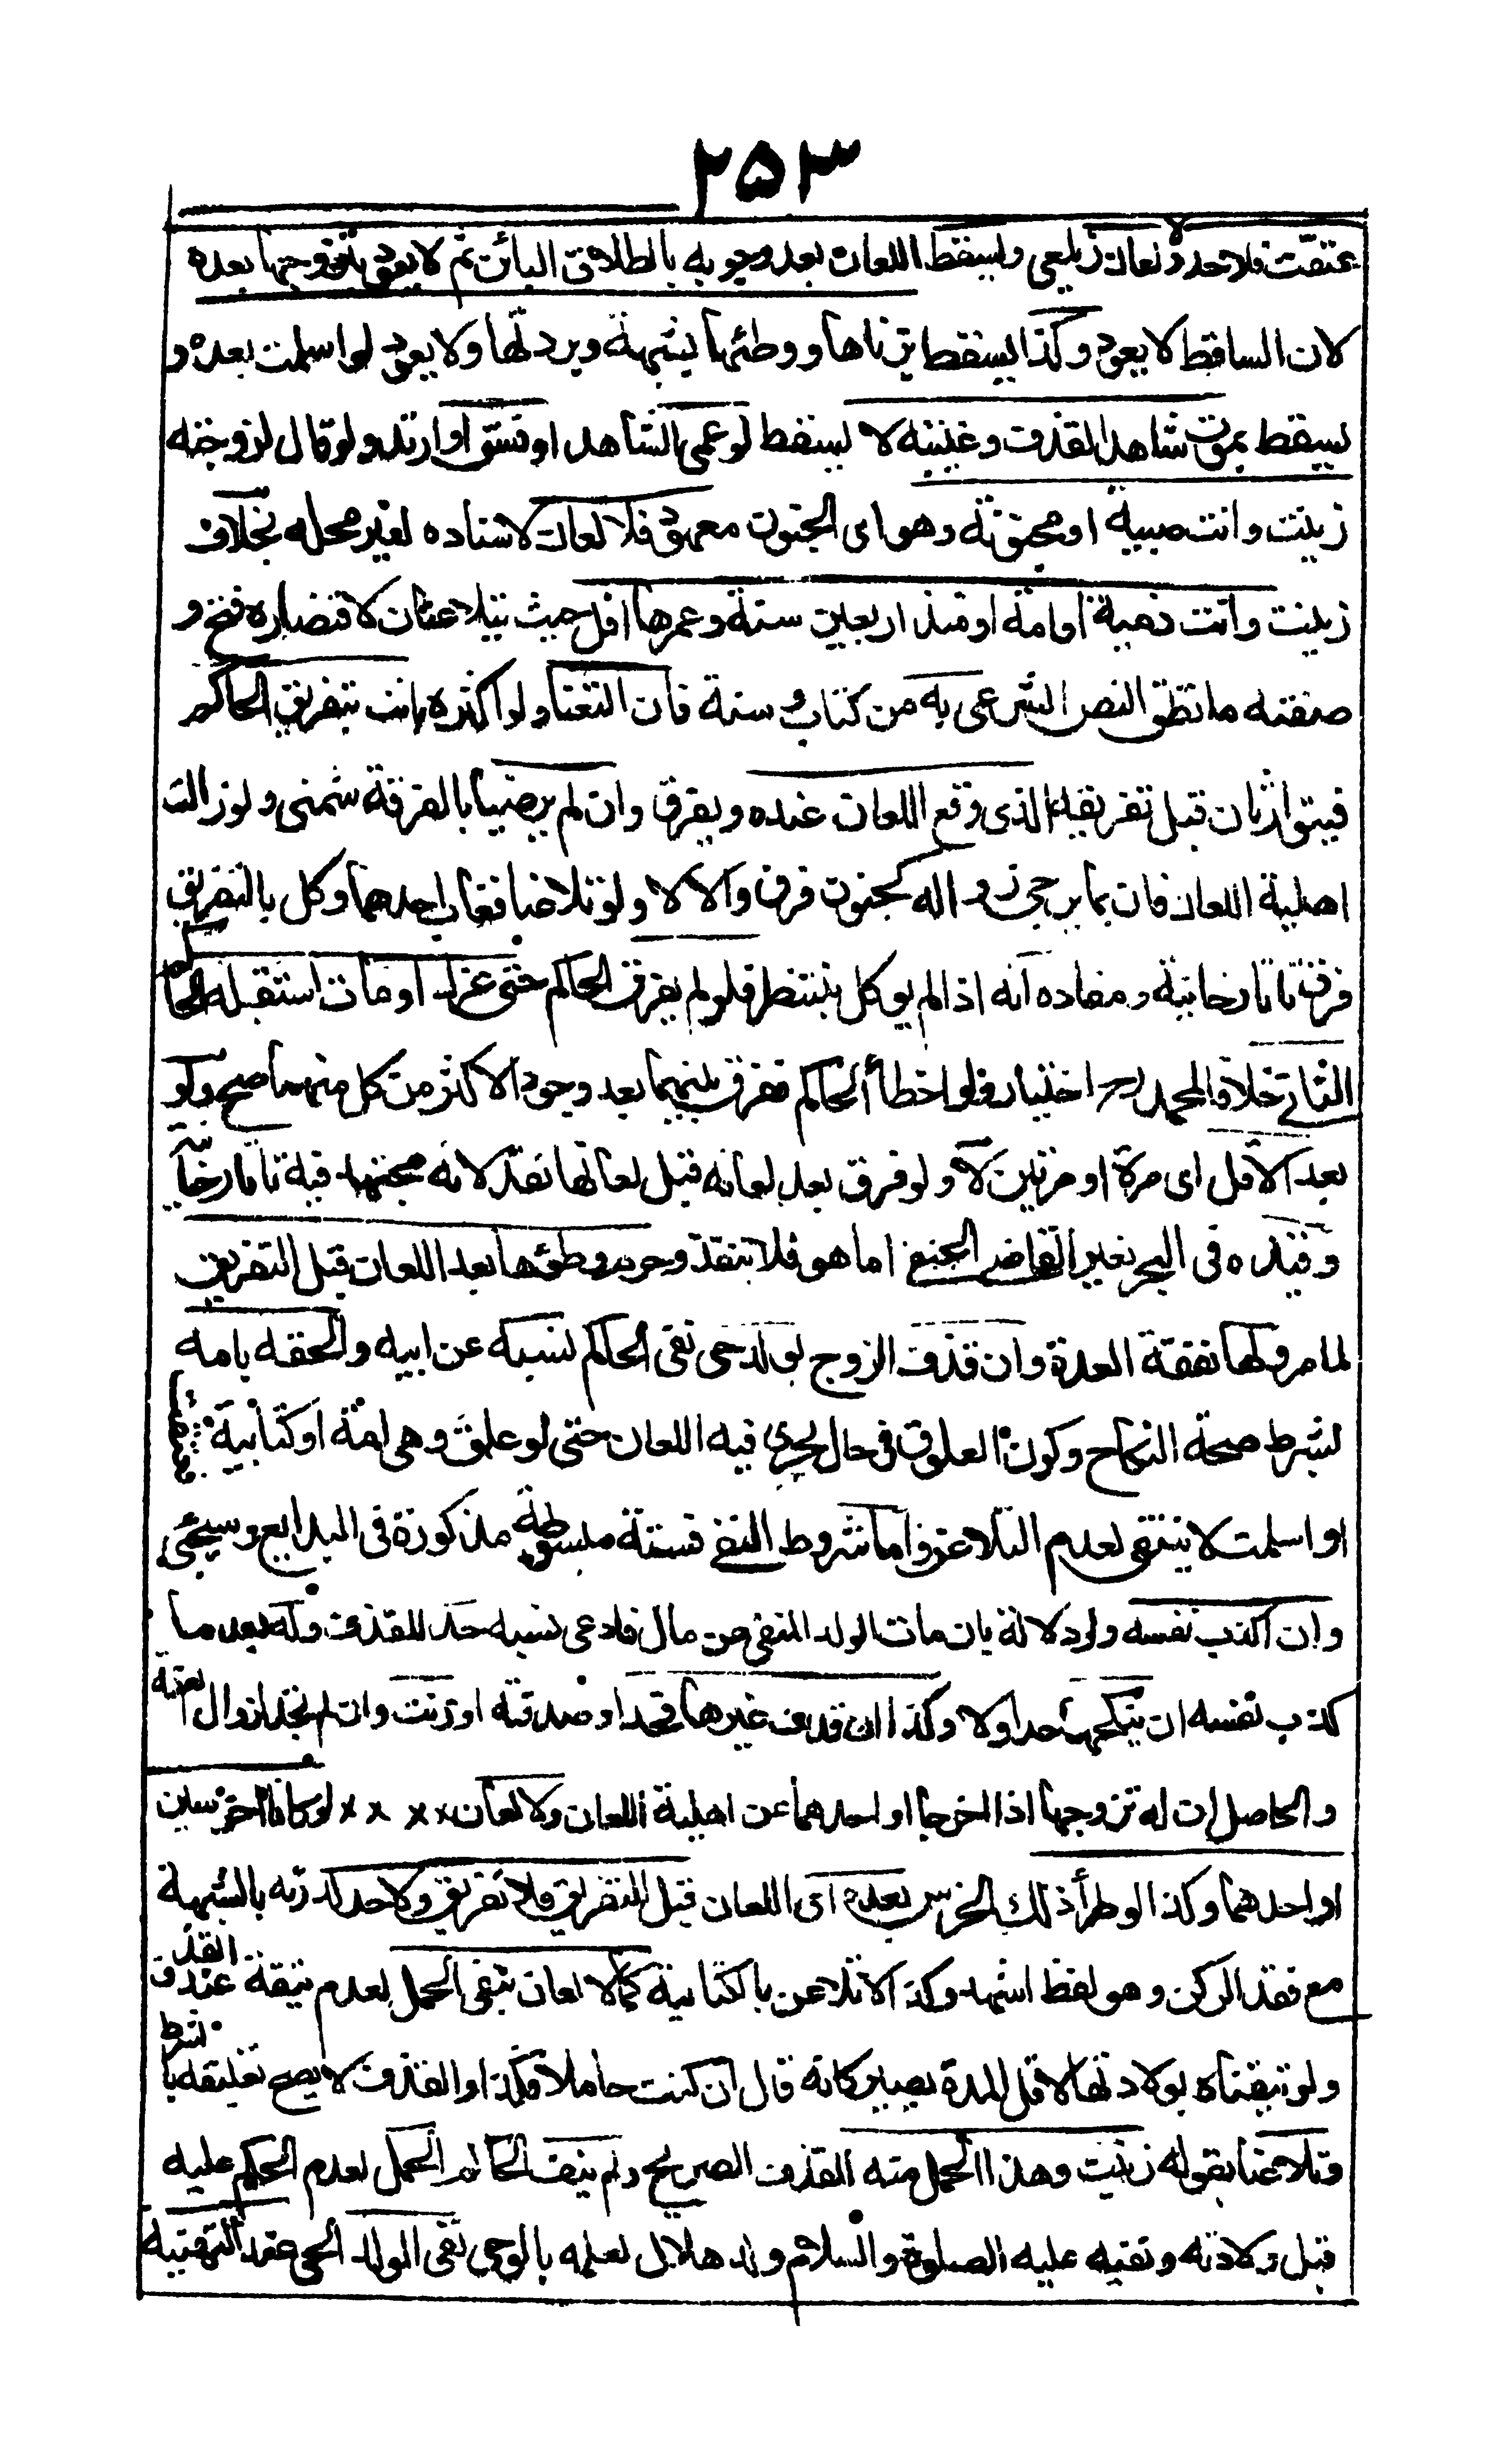 ٢٥٣
عتقت فلا حد ولا لعان زيلعي ويسقط اللعان بعد وجوبه بالطلاق البائن ثم لا يعود بتزوجها بعده
لان الساقط لا يعود وكذا يسقط بزناها ووطئها بشبهة وبردتها ولا يعود لو اسلمت بعده و
يسقط بموت شاهد القذف وغيبته لا يسقط لو عمى الشاهد او فسق او ارتد ولو قال لزوجته
زينت وانت صبية او مجنونة وهو اى الجنون معهود فلا لعان لاسناده لغير محله بخلاف
زينت وانت ذمية او امة او منذ اربعين سنة وعمرها اقل حيث يتلاعنان لاقتصاره فتح و
صفته ما نطق النص الشرعى به من كتاب و سنة فان التعنا ولو اكثره بانت بتفريق الحاكم
فيتوارثان قبل تفريقه الذى وقع اللعان عنده ويفرق وان لم يرضيا بالفرقة شمنى ولو زالت
اهلية اللعان فان بما يرجى زواله كجنون فرق والا لا ولو تلاعنا فغاب احدهما وكل بالتفريق
فرق تاتارخانية ومفاده انه اذا لم يوكل ينتظر فلو لم يفرق الحاكم حتى عزل او مات استقبله الحاكم
الثانى خلافا لمحمد رح اختيار فلو اخطأ الحاكم ففرق بينهما بعد وجود الاكثر من كل منهما صح ولو
بعد الاقل اى مرة او مرتين لا ولو فرق بعد لعانه قبل لعانها نفذ لانه مجتهد فيه تاتارخانية
وقيده فى البحر بغير القاضى الحنفى اما هو فلا ينفذ وحرم وطئها بعد اللعان قبل التفريق
لما مر ولها نفقة العدة وان قذف الزوج بولد حى نفى الحاكم نسبه عن ابيه والحقه بامه
بشرط صحة النكاح وكون العلوق فى حال يجرى فيه اللعان حتى لو علق وهى امة او كتابية
او اسلمت لا ينتفى لعدم التلاعن واما شروط النفى فستة مبسوطة مذكورة فى البدايع وسيجئ
وان اكذب نفسه ولو دلالة بان مات الولد المنفى عن مال فادعى نسبه حد للقذف وله بعد ما
كذب نفسه ان ينكحها حد او لا وكذا ان قذف غيرها فحد او صدقته او زنت وان لم تحد لزوال العفة
والحاصل ان له تزوجها اذا خرجا او احدهما عن اهلية اللعان ولا لعان × × × × لو كانا اخرسين
او احدهما وكذا لو طرأ ذلك الخرس بعده اى اللعان قبل التفريق فلا تفريق ولا حد لدرئه بالشبهة
مع فقد الركن وهو لفظ اشهد وكذا لا تلاعن بالكتابية كما لا لعان بنفى الحمل لعدم تيقنه عند القذف
ولو تيقناه بولادتها لاقل المدة يصير كانه قال ان كنت حاملا فكذا والقذف لا يصح تعليقه بالشرط
وتلاعنا بقوله زنيت وهذا الحمل منه للقذف الصريح ولم ينف الحاكم الحمل لعدم الحكم عليه
قبل ولادته ونفيه عليه الصلوة والسلام ولد هلال لعلمه بالوحى نفى الولد الحى عند التهنية